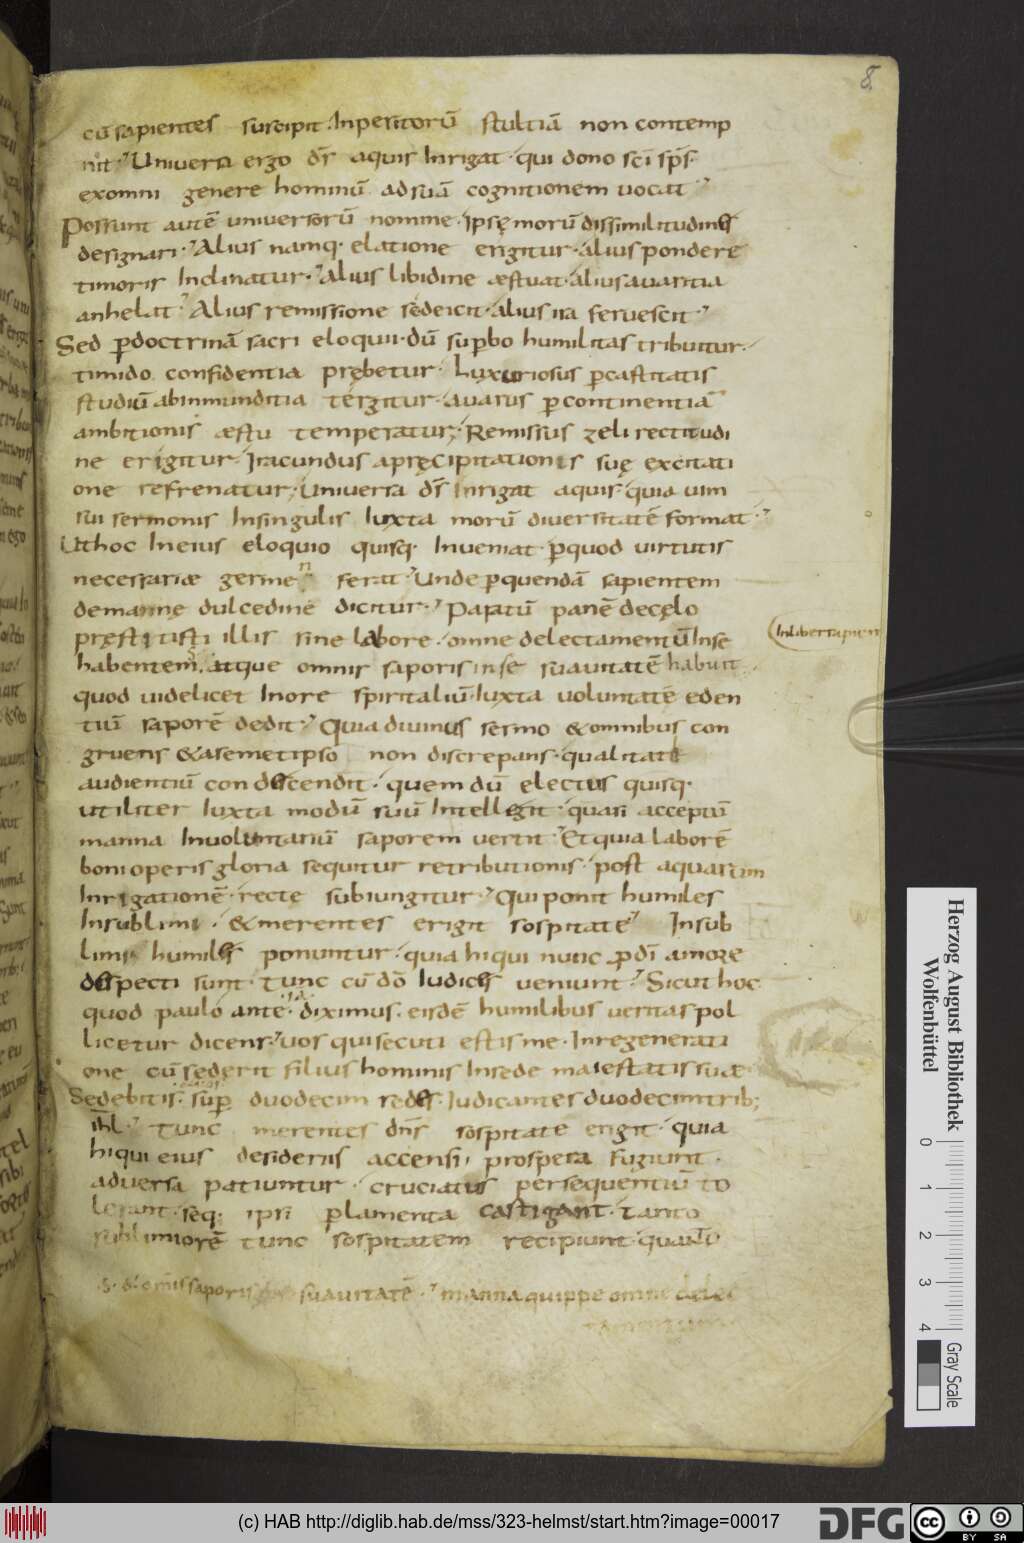 8
cū sapientes suscipit. Inperitorū stultiā non contemp
nit. Universa ergo ds̄ aquis Inrigat. qui dono sci sp̄s.
exomni genere hominū adsuā cognitionem vocat.
Possunt autē universorū nomine. ipsę morū dissimilitudines
designari. Alius namq. elatione erigitur. alius pondere
timoris Inclinatur. Alius libidine æstuat. alius avaritia
anhelat. Alius remissione sedeicit. alius ira fervescit.
Sed p doctrinā sacri eloquii. dū supbo humilitas tribuitur.
timido confidentia prębetur. Luxuriosus p castitatis
studiū abinmunditia tergitur. avarus p continentiā
ambitionis æstu temperatur. Remissus zeli rectitudi
ne erigitur. Iracundus apręcipitationis suę excitati
one refrenatur. Universa ds̄ Inrigat aquis. quia vim
sui sermonis Insingulis Iuxta morū diversitatē format.
Ut hoc Ineius eloquio quisq. Inveniat. pquod virtutis
necessariæ germen ferat. Unde pquendā sapientem
demannę dulcedine dicitur. Paratū panē decęlo
pręstitisti illis sine labore. omne delectamentū Inse
In libertapien
habentem, atque omnis saporis in se suavitatē habuit.
quod videlicet Inore spiritaliū. Iuxta voluntate eden
tiū saporē dedit. Quia divinus sermo & omnibus con
gruens & asemetipso non discrepans. qualitate
audientiū condescendit. quem dū electus quisq.
utiliter Iuxta modū suū Intellegit. quasi acceptū
manna Involuntariū saporem vertit. Et quia laborē
boni operis gloria sequitur retributionis. post aquarum
Inrigationē. recte subiungitur. Qui ponit humiles
Insublimi. & merentes erigit sospitate. Insub
limi humiles ponuntur. quia hi qui nunc p dī amore
despecti sunt. tunc cū dō Iudices veniunt. Sicut hoc
quod paulo ante diximus. eisdē humilibus veritas pol
licetur dicens. vos qui secuti estis me. Inregenerati
one cū sederit filius hominis Insede maiestatis suæ
Sedebitis. sup duodecim sedes. Iudicantes duodecim trib;
ihl. Tunc merentes dn̄s sospitate erigit. quia
hi qui eius desideriis accensi. prospera fugiunt.
adversa patiuntur. cruciatus persequentiū to
lerant. seq; ipsi p lamenta castigant. Tanto
sublimiorē tunc sospitatem recipiunt. quanto
saporis suavitatē. manna quippe omne delec
Herzog August Bibliothek
Wolfenbüttel
0 1 2 3 4
Gray Scale
(c) HAB http://diglib.hab.de/mss/323-helmst/start.htm?image=00017
DFG
cc BY SA